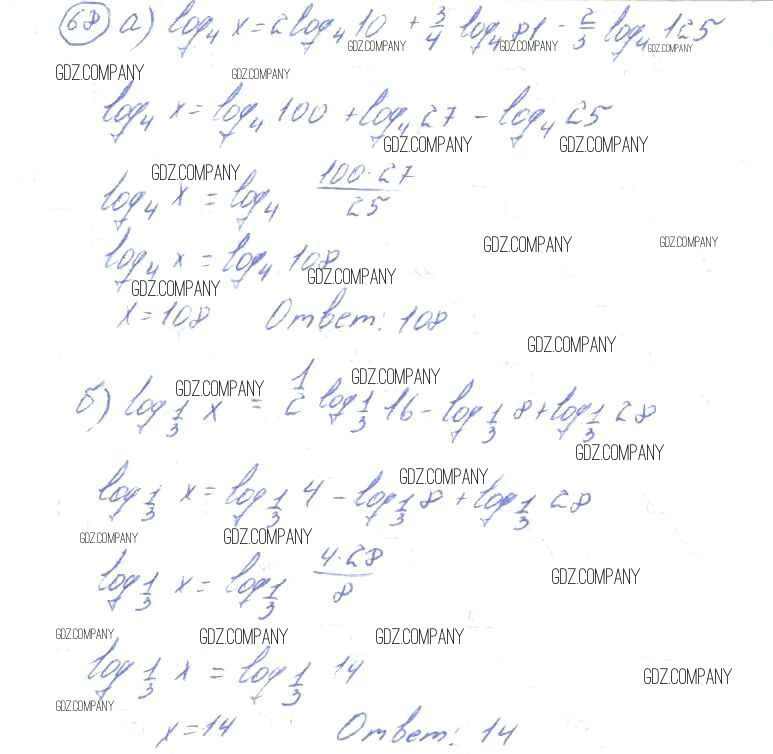 68 а) log₄ x = 2log₄ 10 + 3/4 log₄ 81 - 2/3 log₄ 125
GDZ.COMPANY GDZ.COMPANY GDZ.COMPANY
GDZ.COMPANY GDZ.COMPANY
log₄ x = log₄ 100 + log₄ 27 - log₄ 25
GDZ.COMPANY GDZ.COMPANY
GDZ.COMPANY
log₄ x = log₄ (100·27)/25
GDZ.COMPANY GDZ.COMPANY
log₄ x = log₄ 108
GDZ.COMPANY GDZ.COMPANY
x = 108 Ответ: 108
GDZ.COMPANY
GDZ.COMPANY GDZ.COMPANY
б) log_1/3 x = 1/2 log_1/3 16 - log_1/3 8 + log_1/3 28
GDZ.COMPANY
GDZ.COMPANY
log_1/3 x = log_1/3 4 - log_1/3 8 + log_1/3 28
GDZ.COMPANY GDZ.COMPANY
log_1/3 x = log_1/3 (4·28)/8
GDZ.COMPANY
GDZ.COMPANY GDZ.COMPANY GDZ.COMPANY
log_1/3 x = log_1/3 14
GDZ.COMPANY
GDZ.COMPANY
x = 14 Ответ: 14